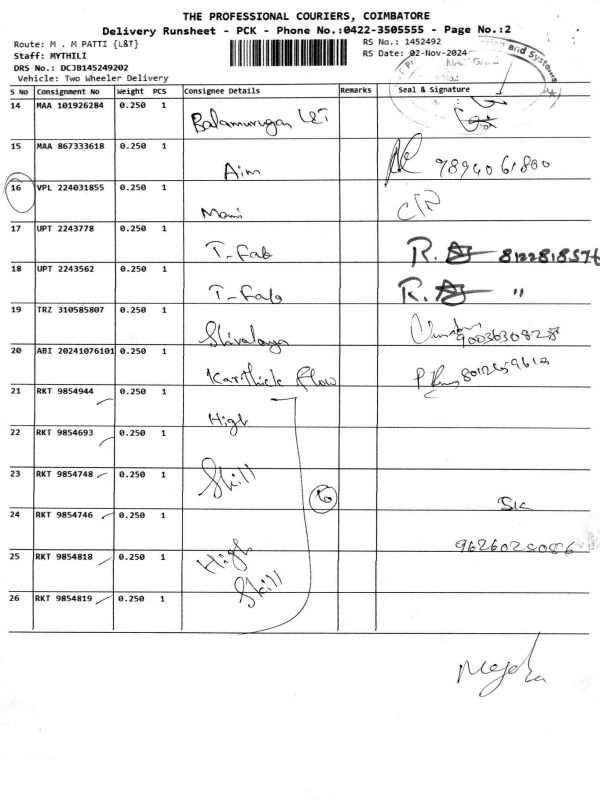 THE PROFESSIONAL COURIERS, COIMBATORE
Delivery Runsheet - PCK - Phone No.:0422-3505555 - Page No.:2
Route: M . M PATTI {L&T}
RS No.: 1452492
Staff: MYTHILI
RS Date: 02-Nov-2024
DRS No.: DCJB145249202
Vehicle: Two Wheeler Delivery
and Systems
S No Consignment No Weight PCS Consignee Details Remarks Seal & Signature
14 MAA 101926284 0.250 1 Balamurugan L&T
15 MAA 867333618 0.250 1 Aim 9894061800
16 VPL 224031855 0.250 1 Mani
17 UPT 2243778 0.250 1 T-Fab R. 8122818576
18 UPT 2243562 0.250 1 T-Fab R. "
19 TRZ 310585807 0.250 1 Shivalaya
20 ABI 20241076101 0.250 1 Karthick Flow
21 RKT 9854944 0.250 1 High
22 RKT 9854693 0.250 1
23 RKT 9854748 0.250 1 Skill
6
24 RKT 9854746 0.250 1
25 RKT 9854818 0.250 1 High
26 RKT 9854819 0.250 1 Skill